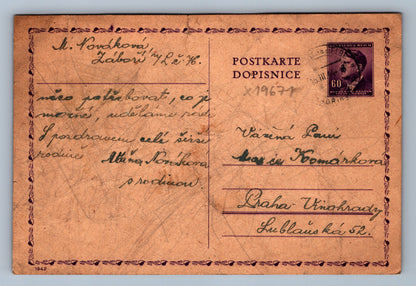 M. Nováková
Záboří n/L č 76
něco potřebovat, co je
možné, uděláme rádi
S pozdravem celé
rodině
Nováková
s rodinou
POSTKARTE
DOPISNICE
60
x 1967
Vážená Paní
Komárková
Praha Vinohrady
Lublaňská 52.
1942